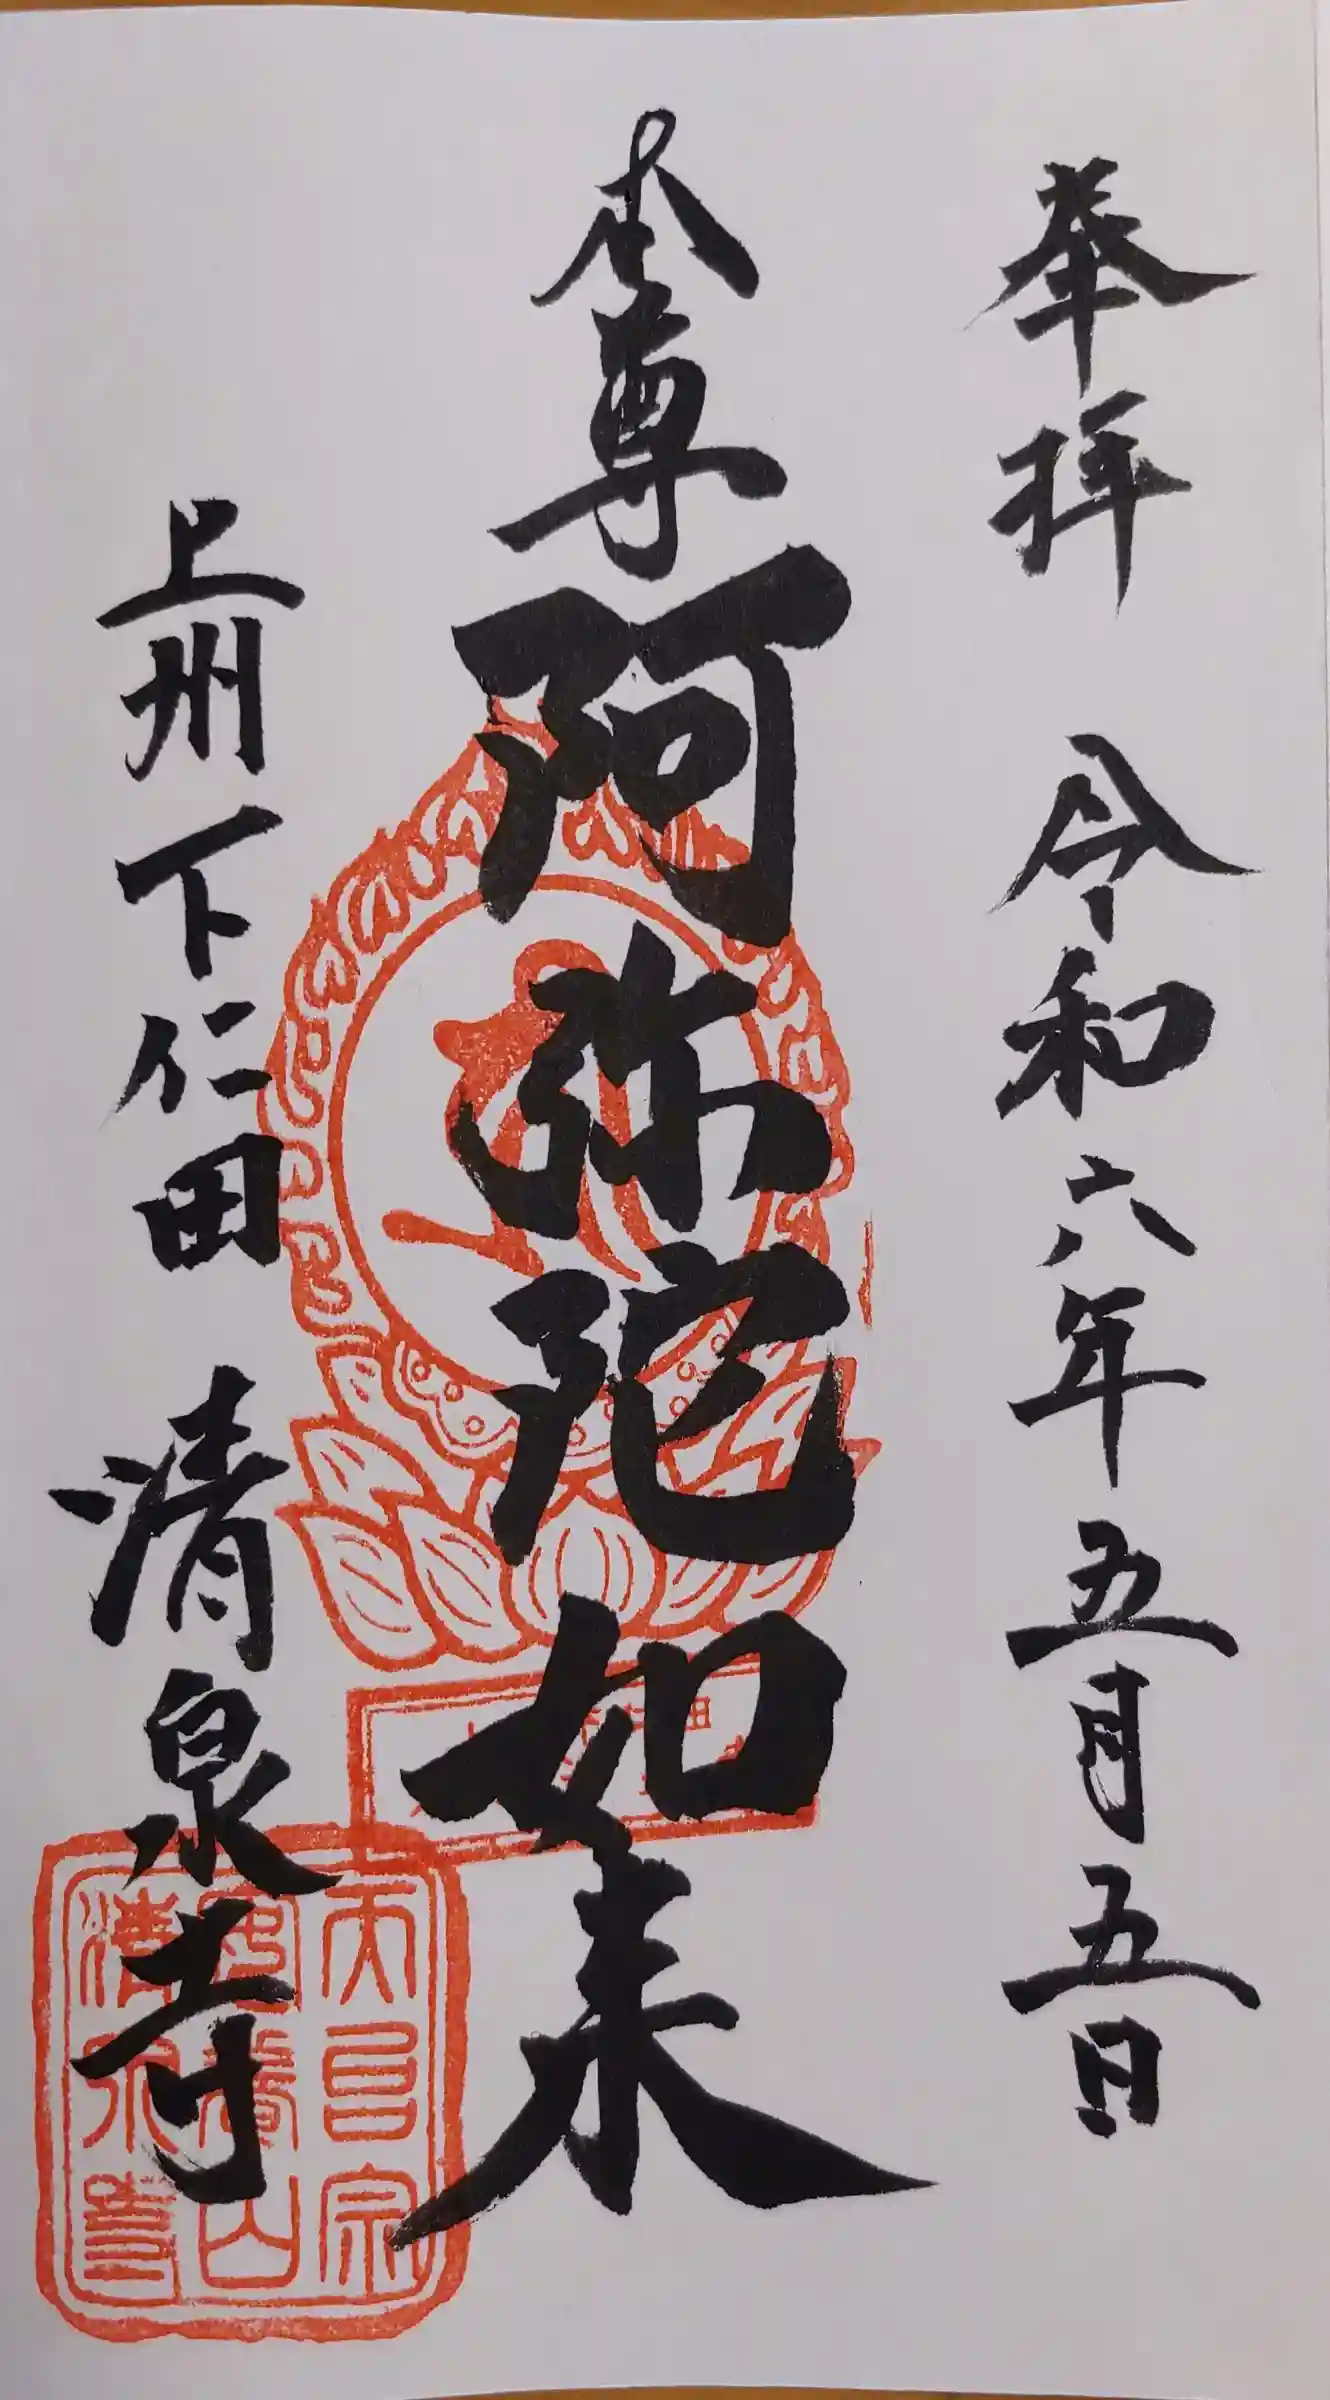 奉拝　令和六年五月五日
本尊阿弥陀如来
上州下仁田　清泉寺
天台宗
清泉寺